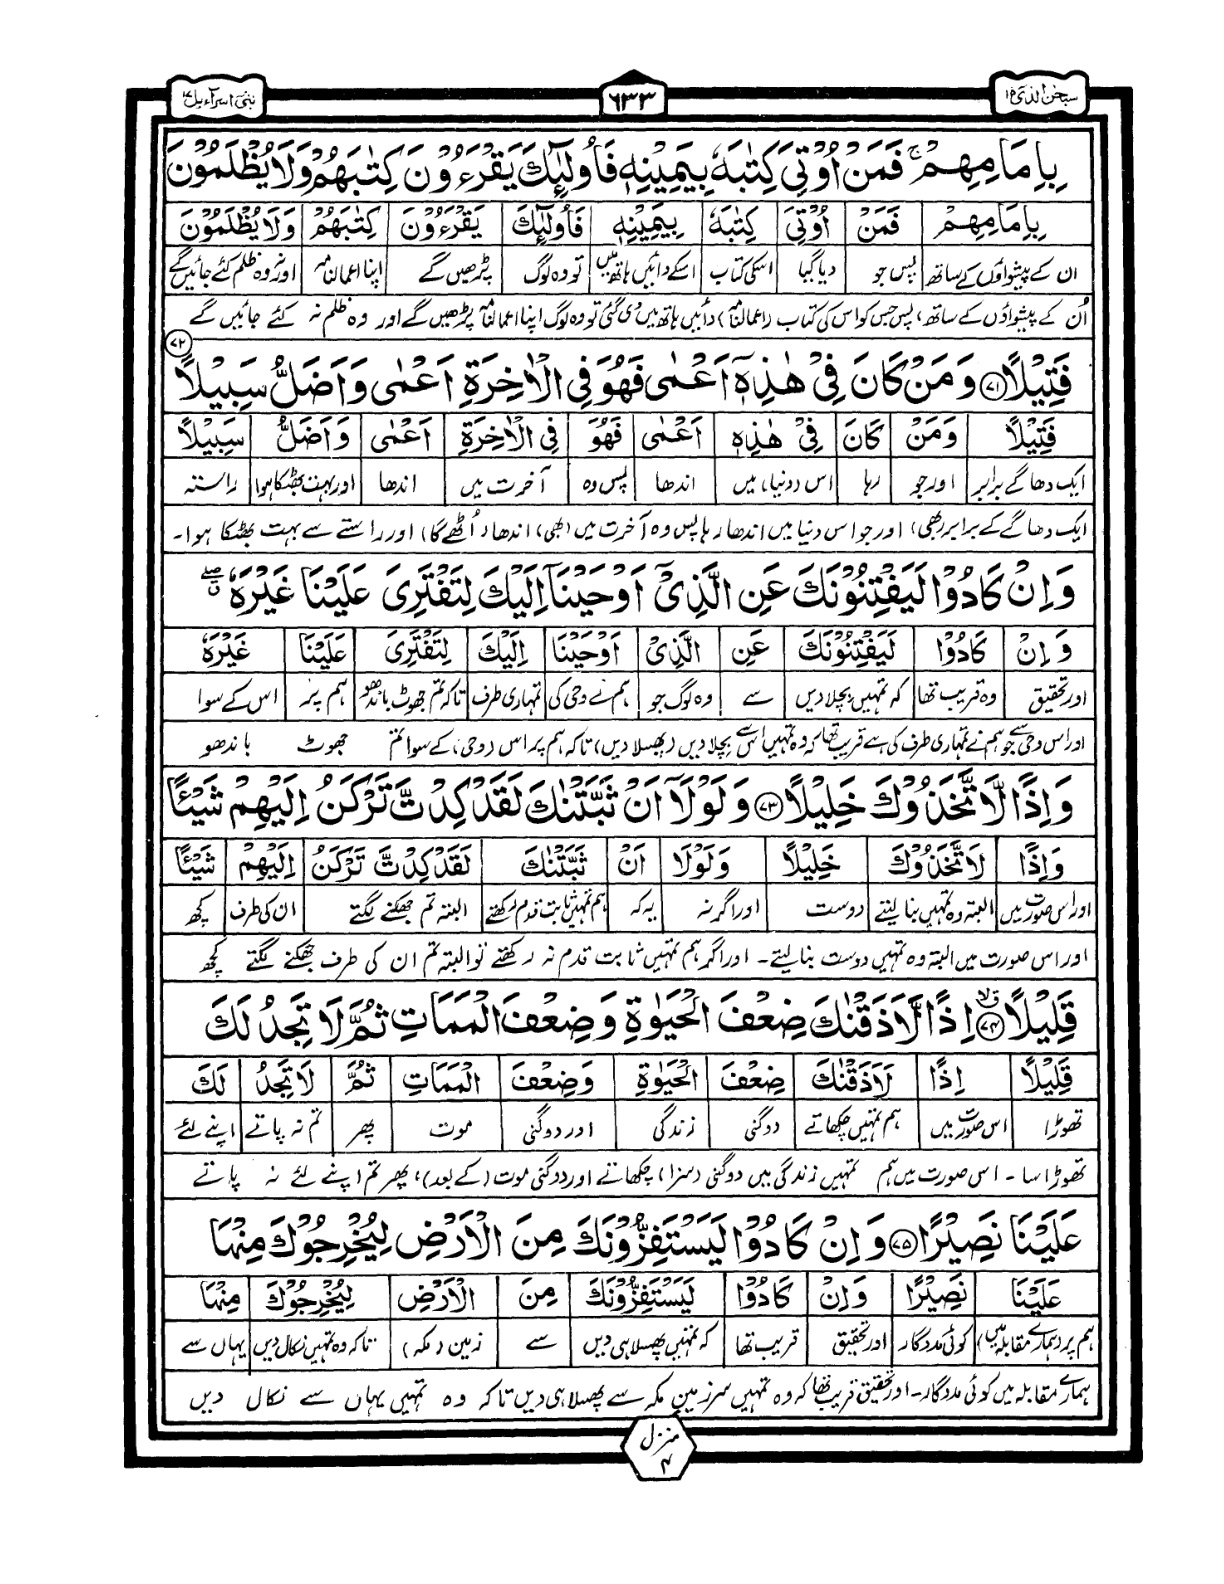 سبحٰن الذی ۱۵
۶۳۳
بنی اسرآءیل ۱۷
بِاِمَامِهِمْ ۚ فَمَنْ اُوْتِیَ كِتٰبَهٗ بِیَمِیْنِهٖ فَاُولٰٓئِكَ یَقْرَءُوْنَ كِتٰبَهُمْ وَلَا یُظْلَمُوْنَ
بِاِمَامِهِمْ فَمَنْ اُوْتِیَ كِتٰبَهٗ بِیَمِیْنِهٖ فَاُولٰٓئِكَ یَقْرَءُوْنَ كِتٰبَهُمْ وَلَا یُظْلَمُوْنَ
ان کے پیشواؤں کے ساتھ پس جو دیا گیا اسکی کتاب اسکے دائیں ہاتھ میں تو وہ لوگ پڑھیں گے اپنا اعمالنامہ اور نہ وہ ظلم کئے جائیں گے
اُن کے پیشواؤں کے ساتھ، پس جس کو اس کی کتاب (اعمالنامہ) دائیں ہاتھ میں دی گئی تو وہ لوگ اپنا اعمالنامہ پڑھیں گے اور وہ ظلم نہ کئے جائیں گے
۷۲
فَتِیْلًا ۷۱ وَمَنْ كَانَ فِیْ هٰذِهٖۤ اَعْمٰی فَهُوَ فِی الْاٰخِرَةِ اَعْمٰی وَاَضَلُّ سَبِیْلًا
فَتِیْلًا وَمَنْ كَانَ فِیْ هٰذِهٖ اَعْمٰی فَهُوَ فِی الْاٰخِرَةِ اَعْمٰی وَاَضَلُّ سَبِیْلًا
ایک دھاگے برابر اور جو رہا اس (دنیا) میں اندھا پس وہ آخرت میں اندھا اور بہت بھٹکا ہوا راستہ
ایک دھاگے کے برابر (بھی) اور جو اس دنیا میں اندھا رہا پس وہ آخرت میں (بھی) اندھا (اُٹھے گا) اور راستے سے بہت بھٹکا ہوا۔
وَاِنْ كَادُوْا لَیَفْتِنُوْنَكَ عَنِ الَّذِیْۤ اَوْحَیْنَاۤ اِلَیْكَ لِتَفْتَرِیَ عَلَیْنَا غَیْرَهٗ ۖ
وَاِنْ كَادُوْا لَیَفْتِنُوْنَكَ عَنِ الَّذِیْ اَوْحَیْنَا اِلَیْكَ لِتَفْتَرِیَ عَلَیْنَا غَیْرَهٗ
اور تحقیق وہ قریب تھا کہ تمہیں بچلا دیں سے وہ لوگ جو ہم نے وحی کی تمہاری طرف تاکہ تم جھوٹ باندھو ہم پر اس کے سوا
اور اس وحی سے جو ہم نے تمہاری طرف کی ہے قریب تھا کہ وہ تمہیں اس سے بچلا دیں (پھسلا دیں) تاکہ ہم پر اس (وحی) کے سوا تم جھوٹ باندھو
وَاِذًا لَّاتَّخَذُوْكَ خَلِیْلًا ۷۳ وَلَوْلَاۤ اَنْ ثَبَّتْنٰكَ لَقَدْ كِدْتَّ تَرْكَنُ اِلَیْهِمْ شَیْئًا
وَاِذًا لَاتَّخَذُوْكَ خَلِیْلًا وَلَوْلَا اَنْ ثَبَّتْنٰكَ لَقَدْ كِدْتَّ تَرْكَنُ اِلَیْهِمْ شَیْئًا
اور اس صورت میں البتہ وہ تمہیں بنا لیتے دوست اور اگر نہ یہ کہ ہم تمہیں ثابت قدم رکھتے البتہ تم جھکنے لگتے ان کی طرف کچھ
اور اس صورت میں البتہ وہ تمہیں دوست بنا لیتے۔ اور اگر ہم تمہیں ثابت قدم نہ رکھتے تو البتہ تم ان کی طرف جھکنے لگتے کچھ
قَلِیْلًا ۷۴ اِذًا لَّاَذَقْنٰكَ ضِعْفَ الْحَیٰوةِ وَضِعْفَ الْمَمَاتِ ثُمَّ لَا تَجِدُ لَكَ
قَلِیْلًا اِذًا لَاَذَقْنٰكَ ضِعْفَ الْحَیٰوةِ وَضِعْفَ الْمَمَاتِ ثُمَّ لَا تَجِدُ لَكَ
تھوڑا اس صورت میں ہم تمہیں چکھاتے دوگنی زندگی اور دوگنی موت پھر تم نہ پاتے اپنے لئے
تھوڑا سا۔ اس صورت میں ہم تمہیں زندگی میں دوگنی (سزا) چکھاتے اور دوگنی موت (کے بعد)، پھر تم اپنے لئے نہ پاتے
عَلَیْنَا نَصِیْرًا ۷۵ وَاِنْ كَادُوْا لَیَسْتَفِزُّوْنَكَ مِنَ الْاَرْضِ لِیُخْرِجُوْكَ مِنْهَا
عَلَیْنَا نَصِیْرًا وَاِنْ كَادُوْا لَیَسْتَفِزُّوْنَكَ مِنَ الْاَرْضِ لِیُخْرِجُوْكَ مِنْهَا
ہم پر (ہمارے مقابلہ میں) کوئی مددگار اور تحقیق قریب تھا کہ تمہیں پھسلا ہی دیں سے زمین (مکہ) تاکہ وہ تمہیں نکال دیں یہاں سے
ہمارے مقابلہ میں کوئی مددگار۔ اور تحقیق قریب تھا کہ وہ تمہیں سرزمین مکہ سے پھسلا ہی دیں تاکہ وہ تمہیں یہاں سے نکال دیں
منزل
۴